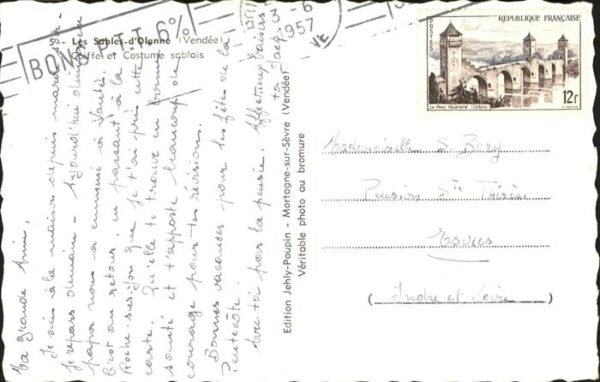 5 - Les Sables-d'Olonne (Vendée)
Coiffe et Costume sablais
BONS
6%
6
1957
RÉPUBLIQUE FRANÇAISE
POSTES
Le Pont Valentré (Cahors)
12F
Ma grande Amie,
Je suis à la maison depuis mardi
Je repars demain - Aujourd'hui
papa nous a emmené à
C'est au retour, en passant à la
Roche-sur-Yon que je t'ai pris cette
carte. Qu'elle te trouve en bonne
santé et t'apporte beaucoup de
courage pour tes révisions.
Bonnes vacances pour les fêtes de la
Pentecôte.
Avec toi par la pensée. Affectueux baisers
Edition Jehly-Poupin - Mortagne-sur-Sèvre (Vendée)
Véritable photo au bromure
Mademoiselle S. Bory
Pension Ste Thérèse
Esvres
(Indre et Loire)